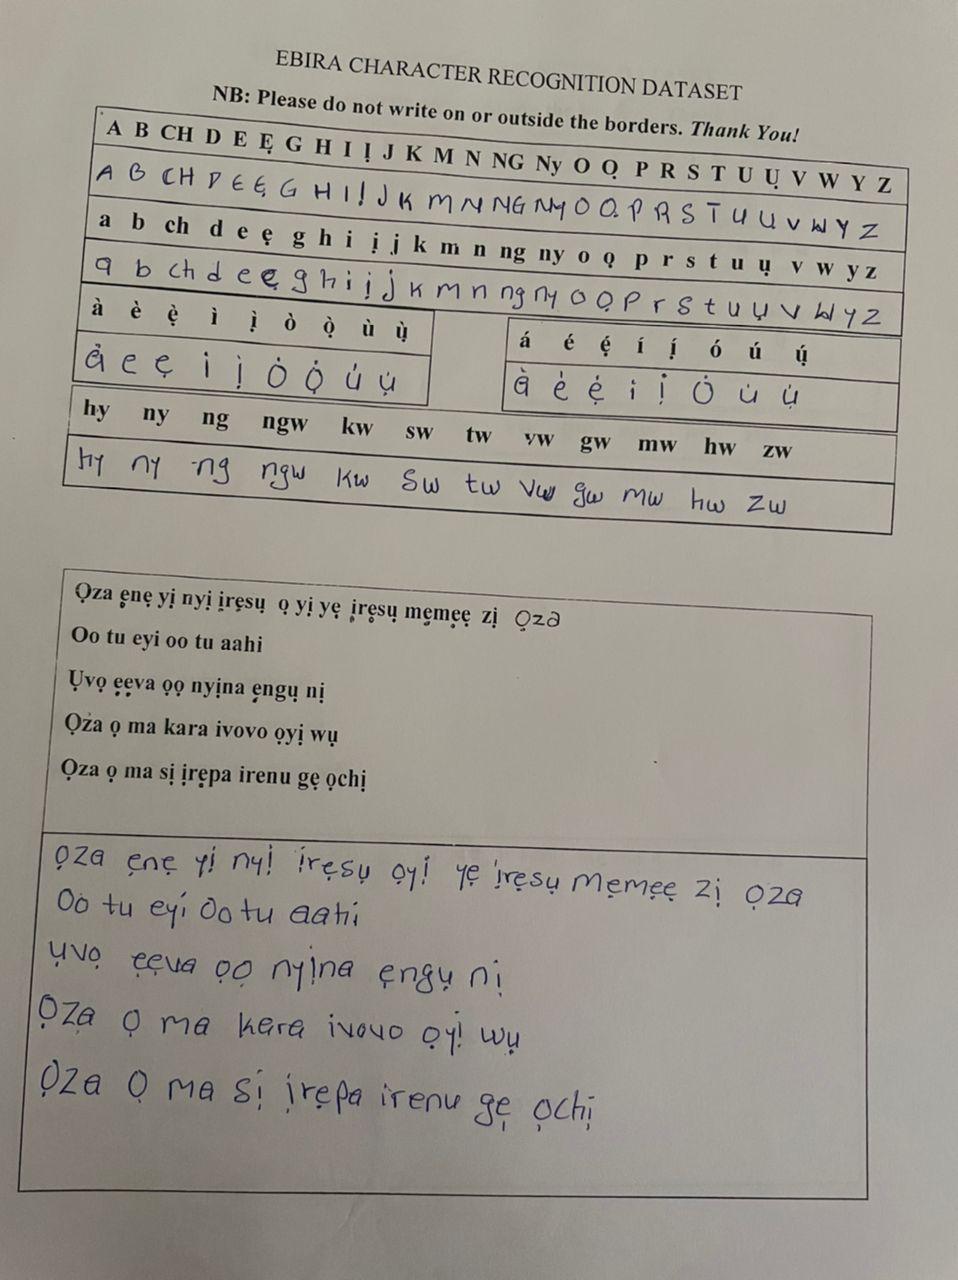 EBIRA CHARACTER RECOGNITION DATASET
NB: Please do not write on or outside the borders. Thank You!
A B CH D E Ẹ G H I Ị J K M N NG Ny O Ọ P R S T U Ụ V W Y Z
A B CH D E Ẹ G H I Ị J K M N NG Ny O Ọ P R S T U Ụ V W Y Z
a b ch d e ẹ g h i ị j k m n ng ny o ọ p r s t u ụ v w y z
a b ch d e ẹ g h i ị j k m n ng ny o ọ p r s t u ụ v w y z
à è ẹ̀ ì ị̀ ò ọ̀ ù ụ̀
à e ẹ i ị ȯ ọ̇ u̇ ụ̇
á é ẹ́ í ị́ ó ú ụ́
à ė ẹ̇ i ị ȯ u̇ ụ̇
hy ny ng ngw kw sw tw vw gw mw hw zw
hy ny ng ngw kw sw tw vw gw mw hw zw
Ọza ẹnẹ yị nyị ịrẹsụ ọ yị yẹ ịrẹsụ mẹmẹẹ zị Ọza
Oo tu eyi oo tu aahi
Ụvọ ẹẹva ọọ nyịna ẹngụ nị
Ọza ọ ma kara ivovo ọyị wụ
Ọza ọ ma sị ịrẹpa irenu gẹ ọchị
Ọza ẹnẹ yị nyị ịrẹsụ ọyị yẹ ịrẹsụ mẹmẹẹ zị Ọza
Oo tu eyi Oo tu aahi
Ụvọ ẹẹva ọọ nyịna ẹngụ nị
Ọza Ọ ma kara ivovo ọyị wụ
Ọza Ọ ma sị ịrẹpa irenu gẹ ọchị